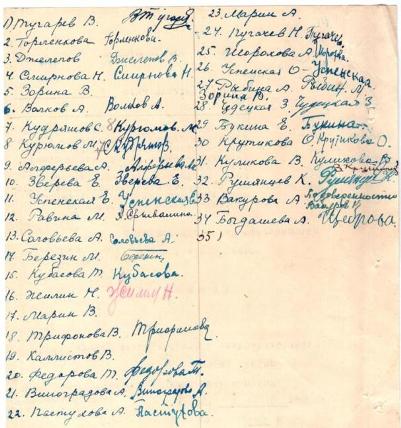 1) Тугарев В.
2. Горленкова Горленкова.
3. Джелепов Джелепов В.
4. Смирнова Н. Смирнова Н.
5. Зорина В.
6. Волков А. Волков А.
7. Кудряшов С.
8 Курюмов М.
9. Алферьева А. Алферьева
10. Зверева Е. Зверева Е.
11. Успенская Е. Успенская
12. Равина М.
13. Соловьева А. Соловьева А.
14 Березин М.
15. Кубасова Т. Кубасова.
16. Жилин Н. Жилин Н.
17. Марин В.
18. Трифонова В. Трифонова
19. Каллистов В.
20. Федорова Т. Федорова Т.
21. Виноградова А. Виноградова А.
22. Пастухова А. Пастухова.
23. Марин А.
24. Пугачев Н.
25.
26. Успенская О- Успенская.
27 Рыбина А.
Зорина В.
28
29 Букина Е. Букина
30 Крутикова О. Крутикова О.
31. Куликова В. Куликова В
32. Румянцев К.
33. Вахурова А
34 Богдашева А.
35)